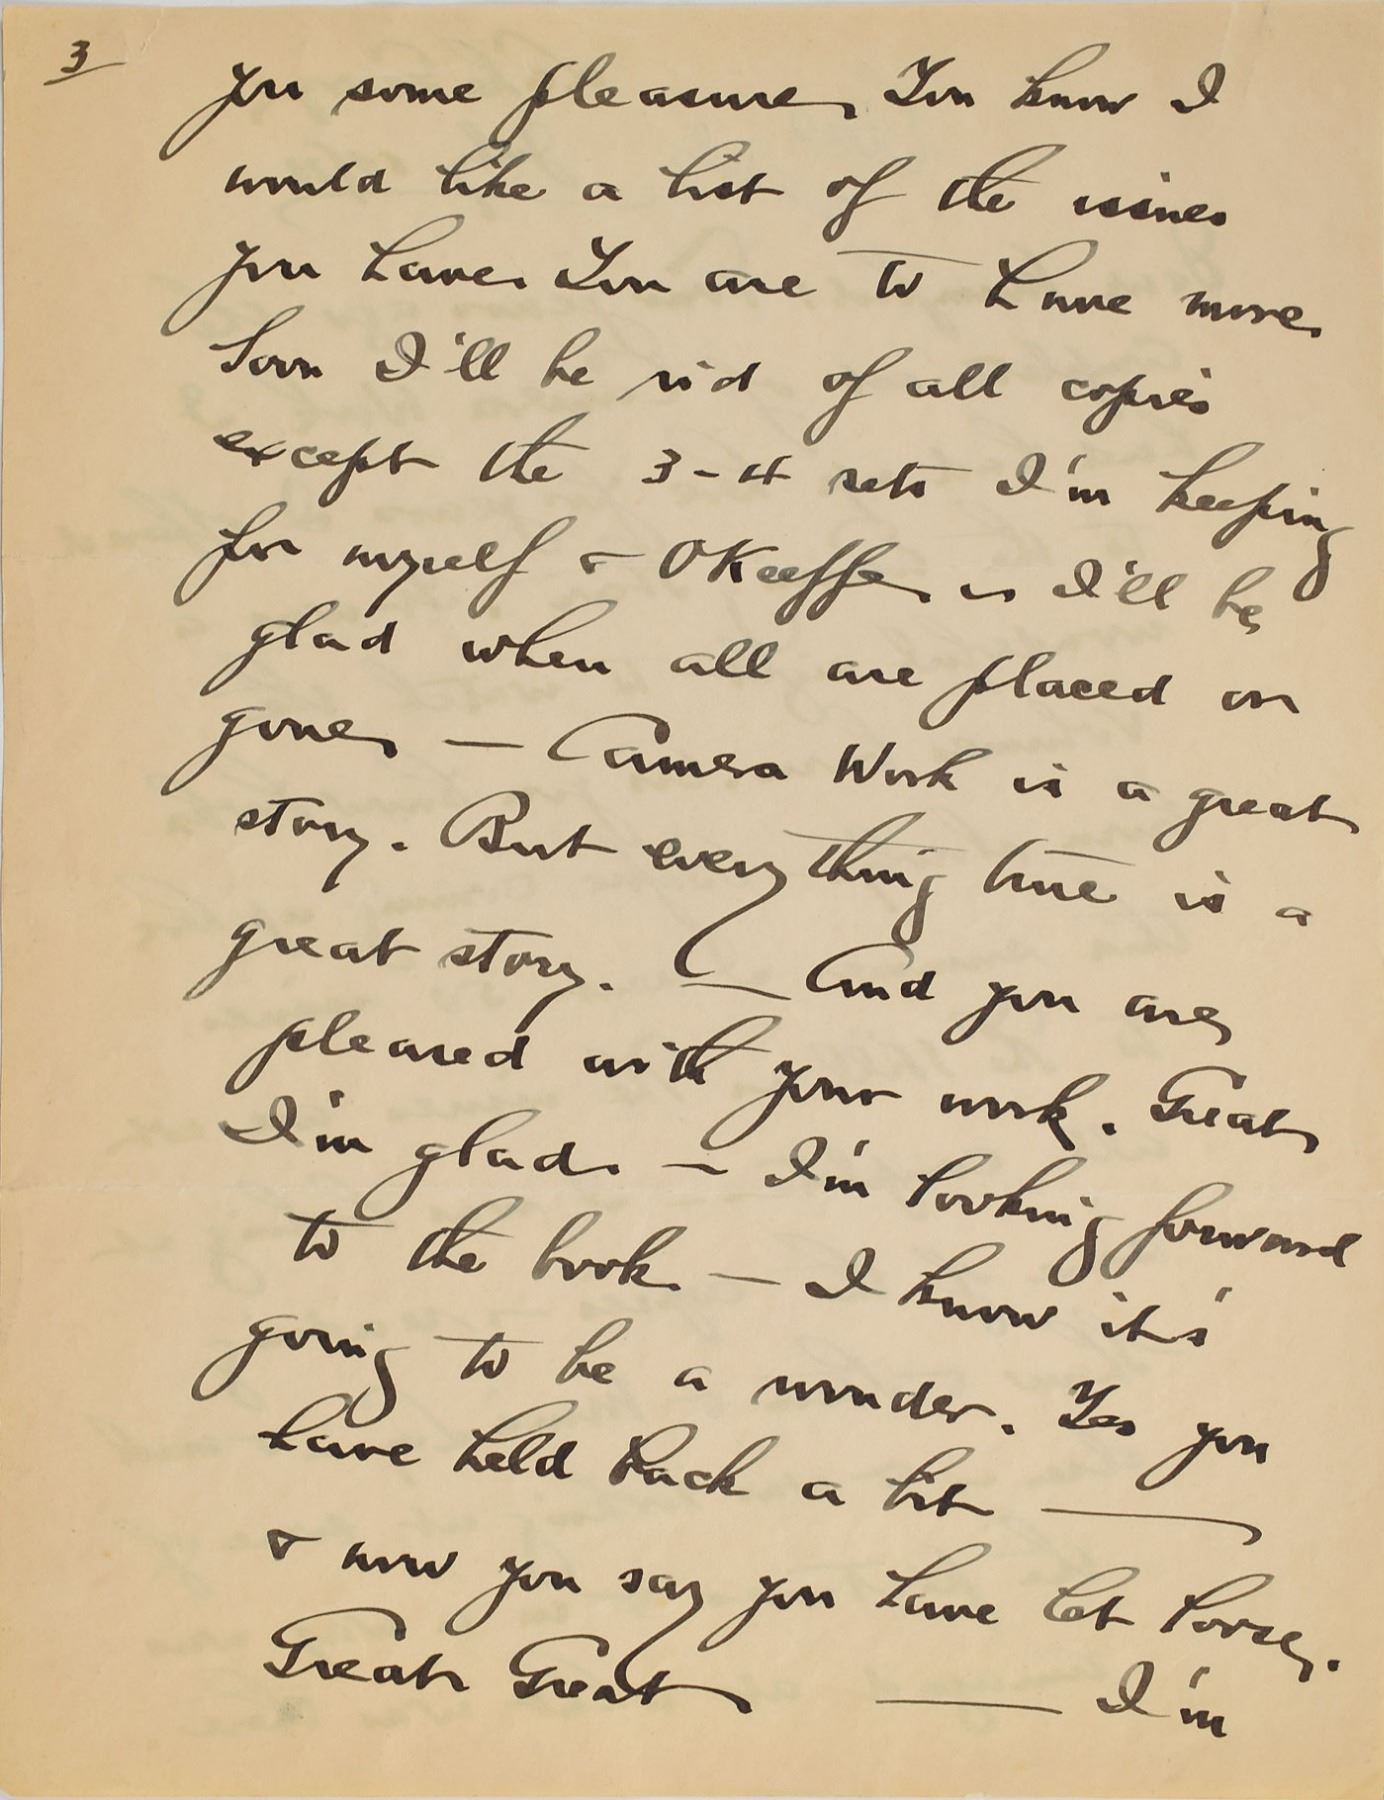 3
you some pleasure. You know I
would like a list of the issues
you have. You are to have more.
Soon I'll be rid of all copies
except the 3-4 sets I'm keeping
for myself & O'Keeffe. I'll be
glad when all are placed or
gone. — Camera Work is a great
story. But everything true is a
great story. — And you are
pleased with your work. Great
I'm glad. — I'm looking forward
to the book. — I know it's
going to be a wonder. Yes you
have held back a bit —
& now you say you have let loose.
Great Great — I'm